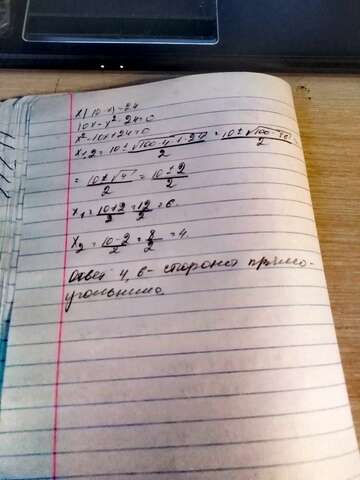 x(10-x)=24
10x-x²-24=0
x²-10x+24=0
x1,2=10±√100-4·1·24/2=10±√100-96/2=
=10±√4/2=10±2/2
x1=10+2/2=12/2=6
x2=10-2/2=8/2=4.
Ответ 4, 6-сторона прямо-
угольника.